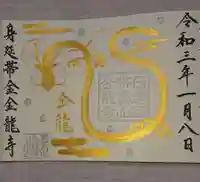 令和三年一月八日
金龍
身延帯金金龍寺